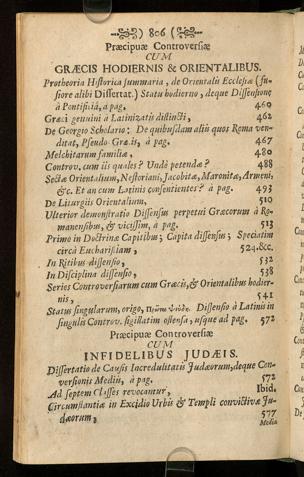 806
Præcipuæ Controversiæ
CUM
GRÆCIS HODIERNIS & ORIENTALIBUS.
Protheoria Historica summaria, de Orientalis Ecclesiæ (fu-
siore alibi Dissertat.) Statu hodierno, deque Dissensione
à Pontificiâ, à pag. 460
Græci genuini à Latinizatis distincti, 462
De Georgio Scholario: De quibusdam aliis quos Roma ven-
ditat, Pseudo Græcis, à pag. 467
Melchitarum familiæ, 480
Controv. cum iis quales? Unde petendæ? 488
Sectæ Orientalium, Nestoriani, Jacobitæ, Maronitæ, Armeni,
&c. Et an cum Latinis consentientes? à pag. 493
De Liturgiis Orientalium, 510
Ulterior demonstratio Dissensus perpetui Græcorum à Ro-
manensibus, & vicissim, à pag. 513
Primo in Doctrinæ Capitibus; Capita dissensus; Speciatim
circà Eucharistiam, 524.&c.
In Ritibus dissensio, 532
In Disciplina dissensio, 538
Series Controversiarum cum Græcis, & Orientalibus hodier-
nis, 541
Status singularum, origo, Πρῶτον ψεῦδος. Dissensio à Latinis in
singulis Controv. sigillatim ostensa, usque ad pag. 572
Præcipuæ Controversiæ
CUM
INFIDELIBUS JUDÆIS.
Dissertatio de Causis Incredulitatis Judæorum, deque Con-
versionis Mediis, à pag. 572
Ad septem Classes revocantur, Ibid.
Circumstantiæ in Excidio Urbis & Templi convictivæ Ju-
dæorum, 577
Media